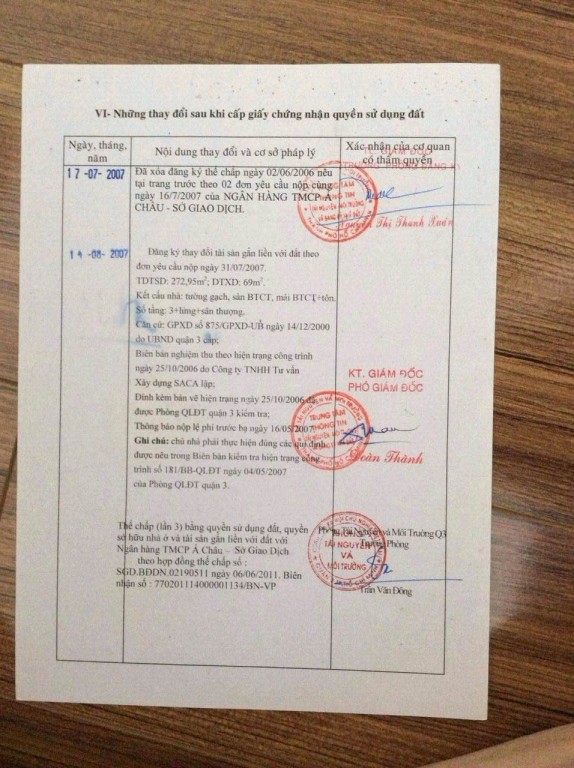 VI- Những thay đổi sau khi cấp giấy chứng nhận quyền sử dụng đất
Ngày, tháng, năm
Nội dung thay đổi và cơ sở pháp lý
Xác nhận của cơ quan có thẩm quyền
17-07-2007
Đã xóa đăng ký thế chấp ngày 02/06/2006 nêu
tại trang trước theo 02 đơn yêu cầu nộp cùng
ngày 16/7/2007 của NGÂN HÀNG TMCP Á
CHÂU - SỞ GIAO DỊCH.
TL. GIÁM ĐỐC
TRƯỞNG PHÒNG ĐĂNG KÝ
TRUNG TÂM
THÔNG TIN
TÀI NGUYÊN MÔI TRƯỜNG
VÀ ĐĂNG KÝ NHÀ ĐẤT
Thị Thanh Xuân
14-08-2007
Đăng ký thay đổi tài sản gắn liền với đất theo
đơn yêu cầu nộp ngày 31/07/2007.
TDTSD: 272,95m²; DTXD: 69m².
Kết cấu nhà: tường gạch, sàn BTCT, mái BTCT+tôn.
Số tầng: 3+lửng+sân thượng.
Căn cứ: GPXD số 875/GPXD-UB ngày 14/12/2000
do UBND quận 3 cấp;
Biên bản nghiệm thu theo hiện trạng công trình
ngày 25/10/2006 do Công ty TNHH Tư vấn
Xây dựng SACA lập;
Đính kèm bản vẽ hiện trạng ngày 25/10/2006 đã
được Phòng QLĐT quận 3 kiểm tra;
Thông báo nộp lệ phí trước bạ ngày 16/05/2007
Ghi chú: chủ nhà phải thực hiện đúng các qui định
được nêu trong Biên bản kiểm tra hiện trạng công
trình số 181/BB-QLĐT ngày 04/05/2007
của Phòng QLĐT quận 3.
KT. GIÁM ĐỐC
PHÓ GIÁM ĐỐC
TRUNG TÂM
THÔNG TIN
Đoàn Thành
Thế chấp (lần 3) bằng quyền sử dụng đất, quyền
sở hữu nhà ở và tài sản gắn liền với đất với
Ngân hàng TMCP Á Châu – Sở Giao Dịch
theo hợp đồng thế chấp số :
SGD.BĐDN.02190511 ngày 06/06/2011. Biên
nhận số : 770201114000001134/BN-VP
Phòng Tài Nguyên và Môi Trường Q3
Trưởng Phòng
PHÒNG
TÀI NGUYÊN
VÀ
MÔI TRƯỜNG
Trần Văn Đông